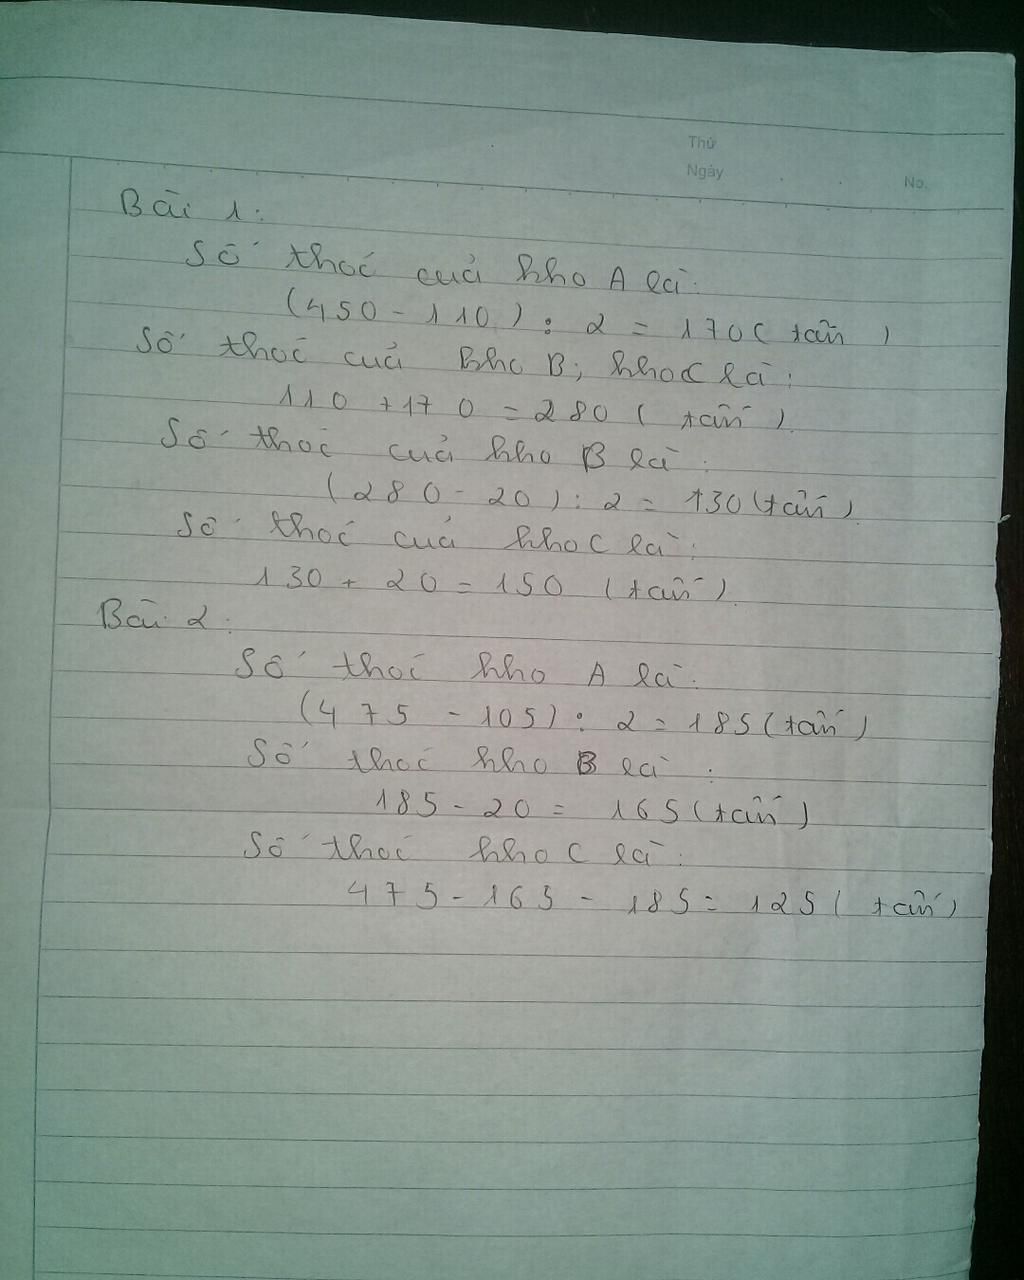 Thứ
Ngày
No.
Bài 1:
Số thóc của kho A là:
(450 - 110) : 2 = 170 (tấn)
Số thóc của kho B; kho C là:
110 + 170 = 280 (tấn)
Số thóc của kho B là:
(280 - 20) : 2 = 130 (tấn)
Số thóc của kho C là:
130 + 20 = 150 (tấn).
Bài 2:
Số thóc kho A là:
(475 - 105) : 2 = 185 (tấn)
Số thóc kho B là:
185 - 20 = 165 (tấn)
Số thóc kho C là:
475 - 165 - 185 = 125 (tấn)